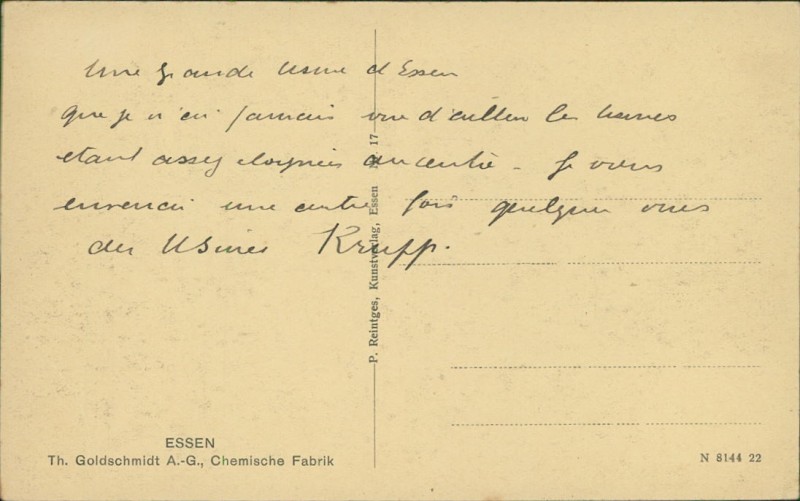 Une grande Usine d'Essen
que je n'ai jamais vue d'ailleur les usines
etant assez eloignées du centre - Je vous
enverrai une autre fois quelques vues
des Usines Krupp.
P. Reintges, Kunstverlag, Essen Nr. 17
ESSEN
Th. Goldschmidt A.-G., Chemische Fabrik
N 8144 22